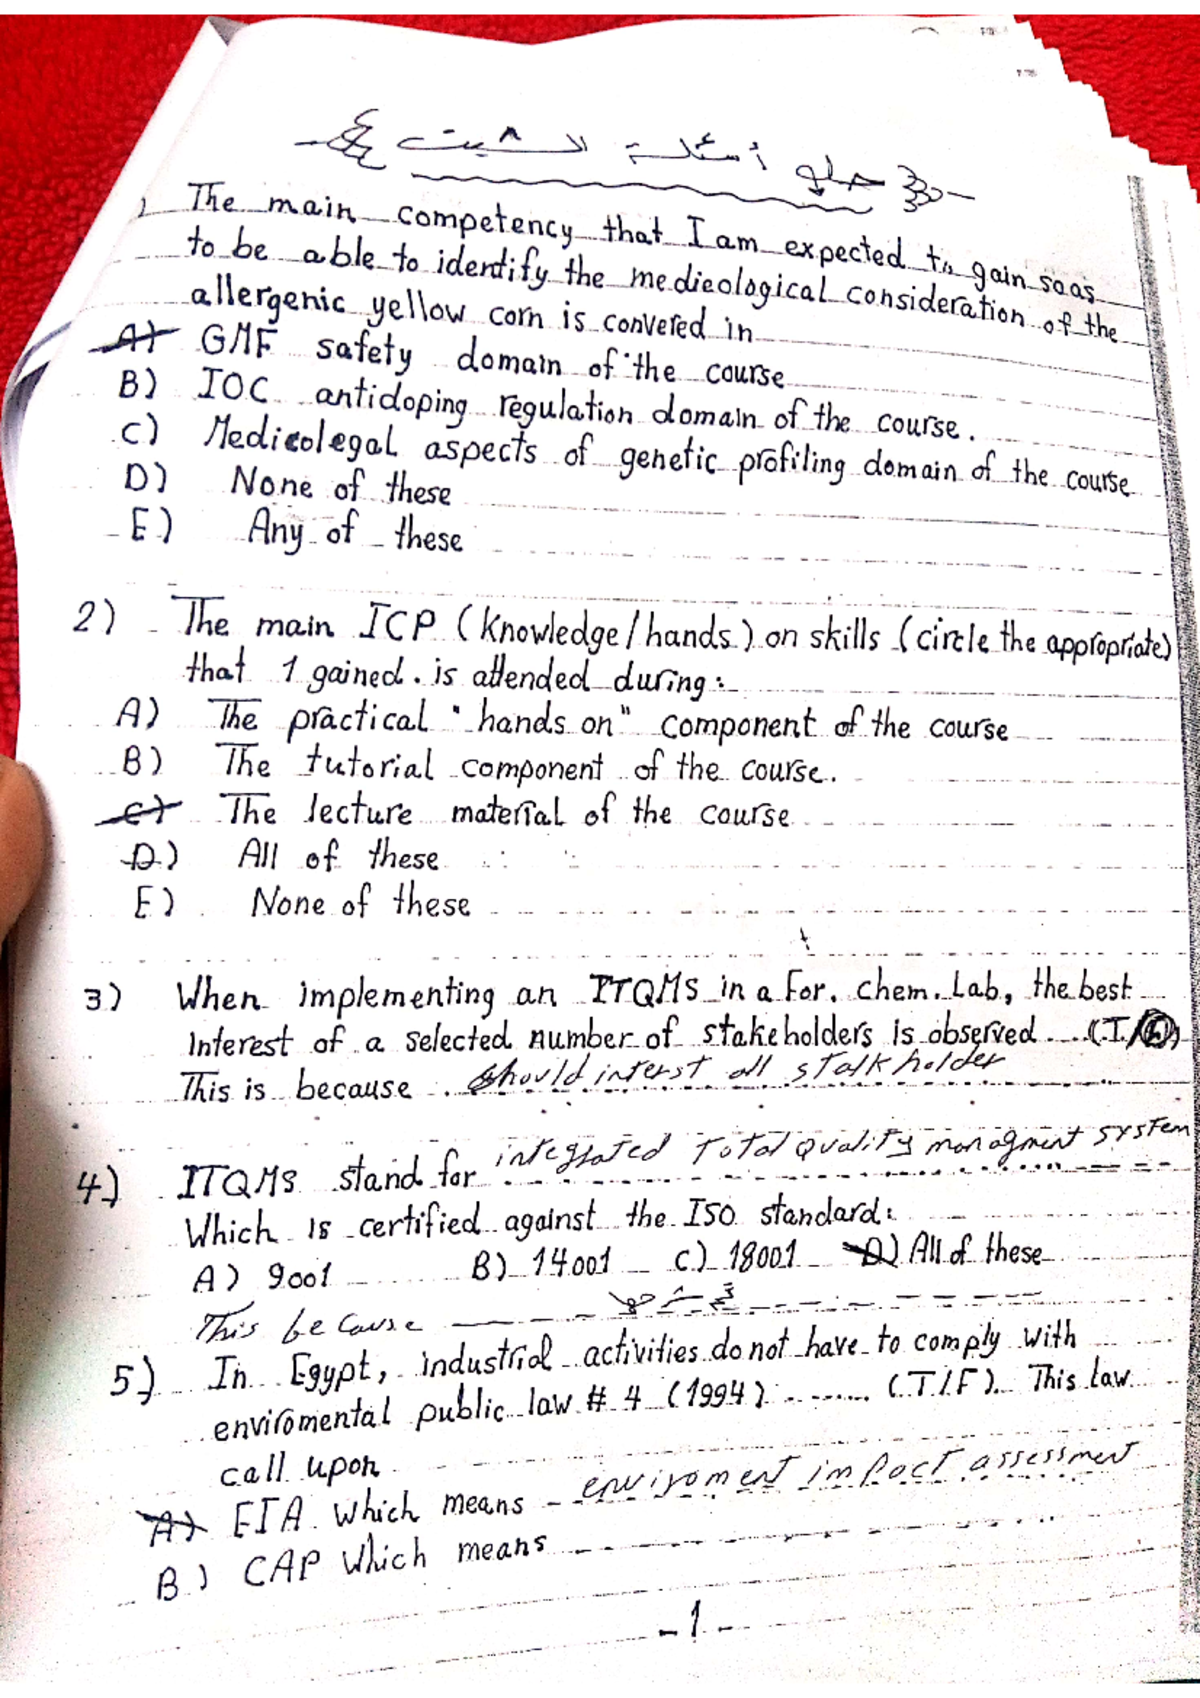 حلو أسئلة الشيت
1) The main competency that I am expected to gain so as
to be able to identify the medicological consideration of the
allergenic yellow corn is convered in
A) GMF safety domain of the course
B) IOC antidoping regulation domain of the course.
C) Medicolegal aspects of genetic profiling domain of the course
D) None of these
E) Any of these
2) The main ICP (knowledge/hands) on skills (circle the appropriate)
that 1 gained. is attended during:
A) The practical "hands on" component of the course
B) The tutorial component of the course.
C) The lecture material of the course
D) All of these
E) None of these
3) When implementing an ITQMS in a For. chem. Lab, the best
Interest of a selected number of stakeholders is observed....(T/F)
This is because should interst all stalkholder
4) ITQMS stand for integrated Total Quality managment system
Which is certified against the ISO standard:
A) 9001 B) 14001 C) 18001 D) All of these
This because
5) In Egypt, industrial activities do not have to comply with
enviromental public law # 4 (1994) ........ (T/F). This law
call upon
A) EIA which means enviroment impact assessment
B) CAP which means
-1-